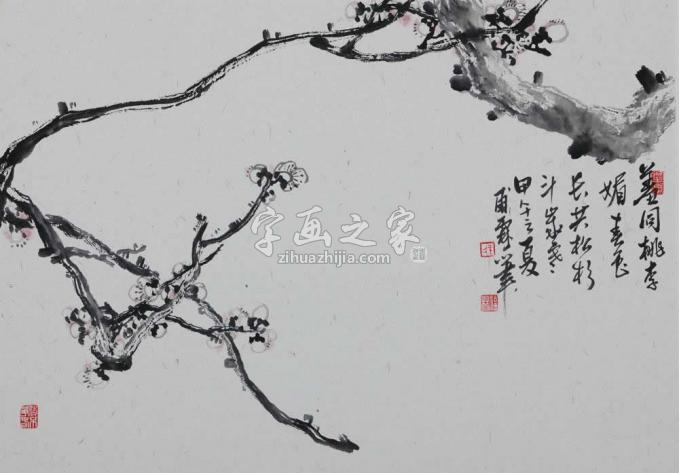 羞同桃李
媚春色
长共松杉
斗岁寒
甲午之夏
字画之家
zihuazhijia.com